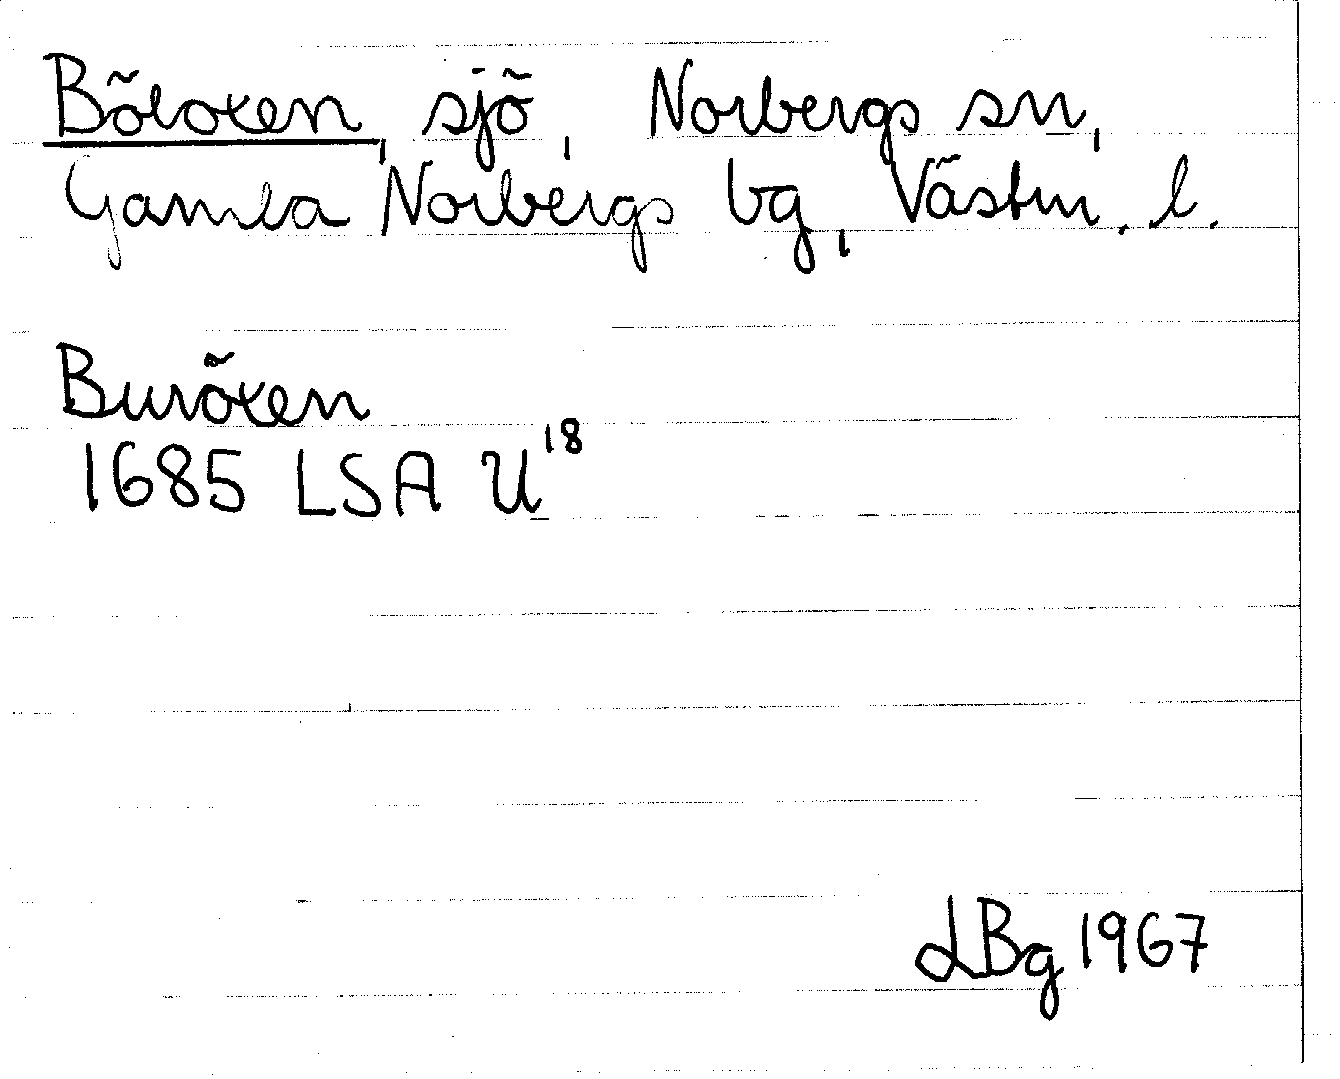 Böloxen, sjö, Norbergs sn,
Gamla Norbergs bg, Västm. l.
Buröxen
1685 LSA U¹⁸
LBg 1967